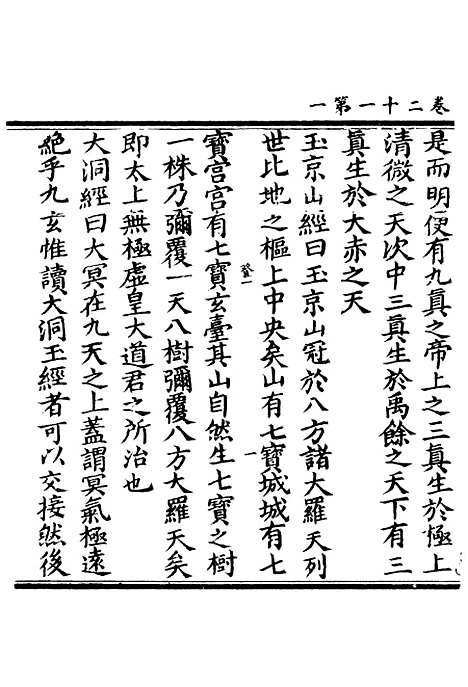 卷二十一第一
是而明便有九眞之帝上之三眞生於極上
清微之天次中三眞生於禹餘之天下有三
眞生於大赤之天
玉京山經曰玉京山冠於八方諸大羅天列
世比地之樞上中央矣山有七寶城城有七
寶宮宮有七寶玄臺其山自然生七寶之樹
一株乃彌覆一天八樹彌覆八方大羅天矣
即太上無極虛皇大道君之所治也
大洞經曰大冥在九天之上蓋謂冥氣極遠
絶乎九玄惟讀大洞玉經者可以交接然後